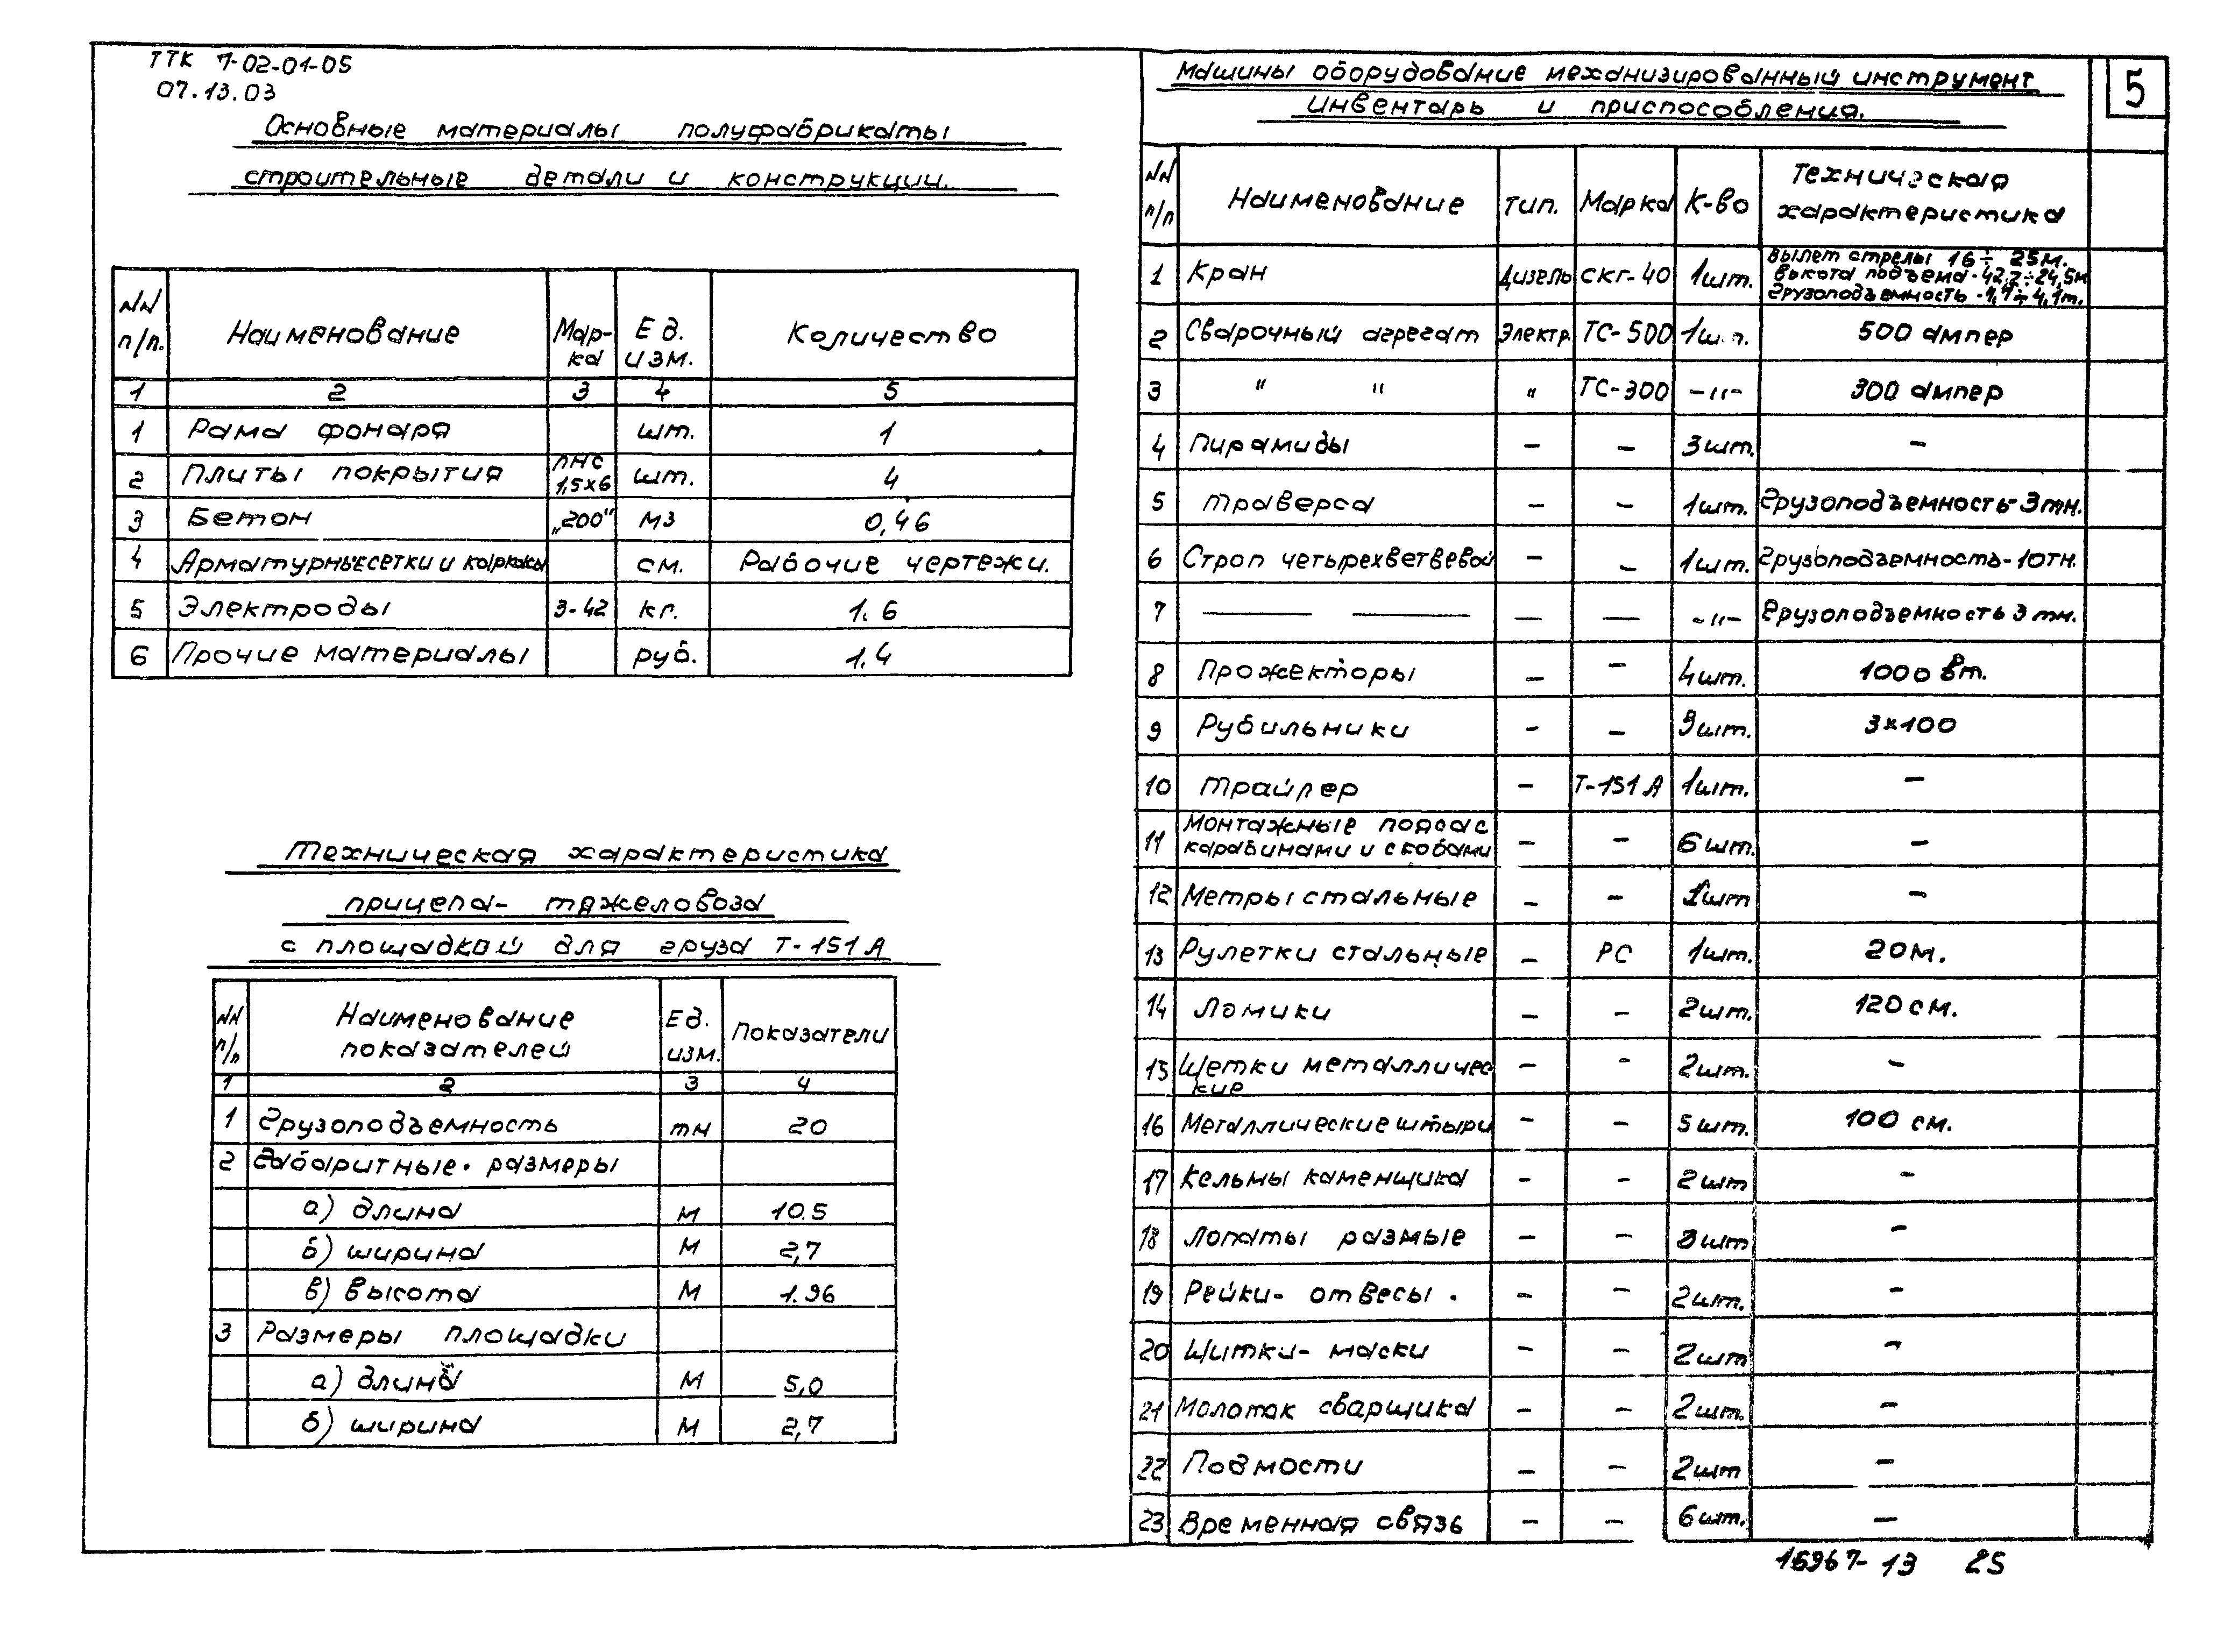 ТТК 7-02-01-05
07.13.03
Основные материалы полуфабрикаты
строительные детали и конструкции.
NN п/п. Наименование Мар-ка Ед. изм. Количество
1 2 3 4 5
1 Рама фонаря шт. 1
2 Плиты покрытия ПНС 1,5х6 шт. 4
3 Бетон „200" м3 0,46
4 Арматурные сетки и каркасы см. Рабочие чертежи.
5 Электроды Э-42 кг. 1.6
6 Прочие материалы руб. 1.4
Техническая характеристика
прицепа- тяжеловоза
с площадкой для груза Т-151А
NN п/п Наименование показателей Ед. изм. Показатели
1 2 3 4
1 Грузоподъемность тн 20
2 Габаритные размеры
а) длина м 10.5
б) ширина м 2,7
в) высота м 1.96
3 Размеры площадки
а) длина м 5,0
б) ширина м 2,7
Машины оборудование механизированный инструмент
инвентарь и приспособления.
5
NN п/п Наименование Тип. Марка К-во Техническая характеристика
1 Кран Дизель СКГ-40 1шт. Вылет стрелы 16÷25м.
высота подъема-42,2÷24,5м
грузоподъемность
2 Сварочный агрегат Электр. ТС-500 1шт. 500 ампер
3 " " " ТС-300 -"- 300 ампер
4 Пирамиды - - 3шт. -
5 Траверса - - 1шт. Грузоподъемность-3тн.
6 Строп четырехветвевой - - 1шт. Грузоподъемность-10тн.
7 — — — — -"- Грузоподъемность 3тн.
8 Прожекторы - - 4шт. 1000 вт.
9 Рубильники - - шт. 3х100
10 Трайлер - Т-151А 1шт. -
11 Монтажные пояса с
карабинами и скобами - - 6шт. -
12 Метры стальные - - шт -
13 Рулетки стальные - РС 1шт. 20м.
14 Ломики - - 2шт. 120см.
15 Щетки металличес
кие - - 2шт. -
16 Металлические штыри - - 5шт. 100 см.
17 Кельмы каменщика - - 2шт -
18 Лопаты разные - - 3шт -
19 Рейки- отвесы. - - 2шт. -
20 Щитки- маски - - 2шт -
21 Молоток сварщика - - 2шт. -
22 Подмости - - 2шт -
23 Временная связь - - 6шт. -
16967-13 25